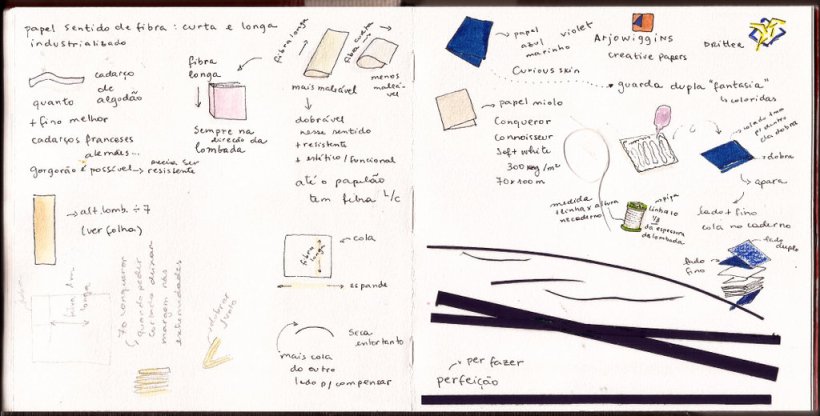 papel sentido de fibra: curta e longa
industrializado
cadarço
de
algodão
quanto
+ fino melhor
cadarços franceses
alemães...
gorgorão é possível → precisa ser
resistente
→ alt. lomb. ÷ 7
(ver folha)
fibra
longa
sempre na
direção da
lombada
fibra longa
fibra curta
mais maleável
menos
maleá-
vel
dobrável
nesse sentido
+ resistente
+ estético/funcional
até o papelão
tem fibra L/c
fibra
longa
→ cola
expande
seca
entortanto
mais cola
do outro
lado p/ compensar
fibra
longa
70 conqueror
quando pedir
margem nas
extremidades
dobrar
junto
papel
azul
marinho
violet
Curious skin
Arjowiggins
creative papers
Dritter
guarda dupla "fantasia"
↳ coloridas
→ papel miolo
Conqueror
Connoisseur
Soft white
300 kg/m²
70x100m
p/ dentro
da dobra
→ dobra
→ apara
lado + fino
cola no caderno
medida
1 linha x altura
nº caderno
linha 10
1/3
da espessura
da lombada
lado
duplo
lado
fino
per fazer
perfeição